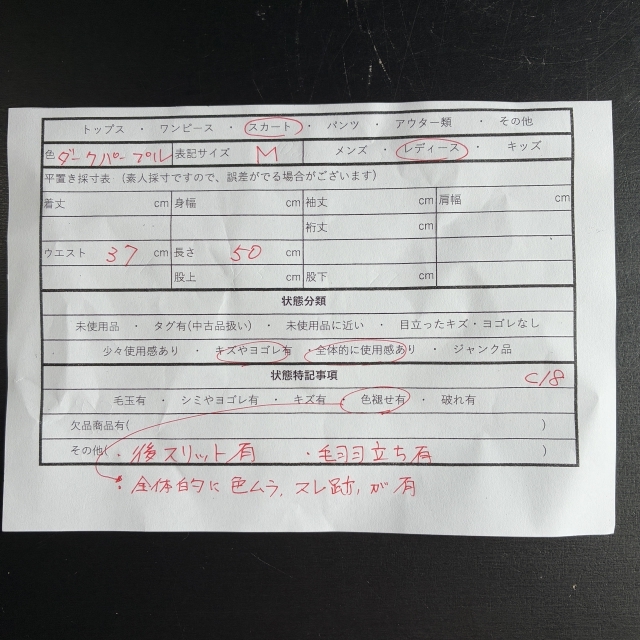 トップス ・ ワンピース ・ スカート ・ パンツ ・ アウター類 ・ その他
色 ダークパープル 表記サイズ M メンズ ・ レディース ・ キッズ
平置き採寸表 (素人採寸ですので、誤差がでる場合がございます)
着丈 cm 身幅 cm 袖丈 cm 肩幅 cm
裄丈 cm
ウエスト 37 cm 長さ 50 cm
股上 cm 股下 cm
状態分類
未使用品 ・ タグ有(中古品扱い) ・ 未使用品に近い ・ 目立ったキズ・ヨゴレなし
少々使用感あり ・ キズやヨゴレ有 ・ 全体的に使用感あり ・ ジャンク品
状態特記事項 C18
毛玉有 ・ シミやヨゴレ有 ・ キズ有 ・ 色褪せ有 ・ 破れ有
欠品商品有( )
その他( ・後スリット有 ・毛羽立ち有 )
・全体的に色ムラ,スレ跡,が有